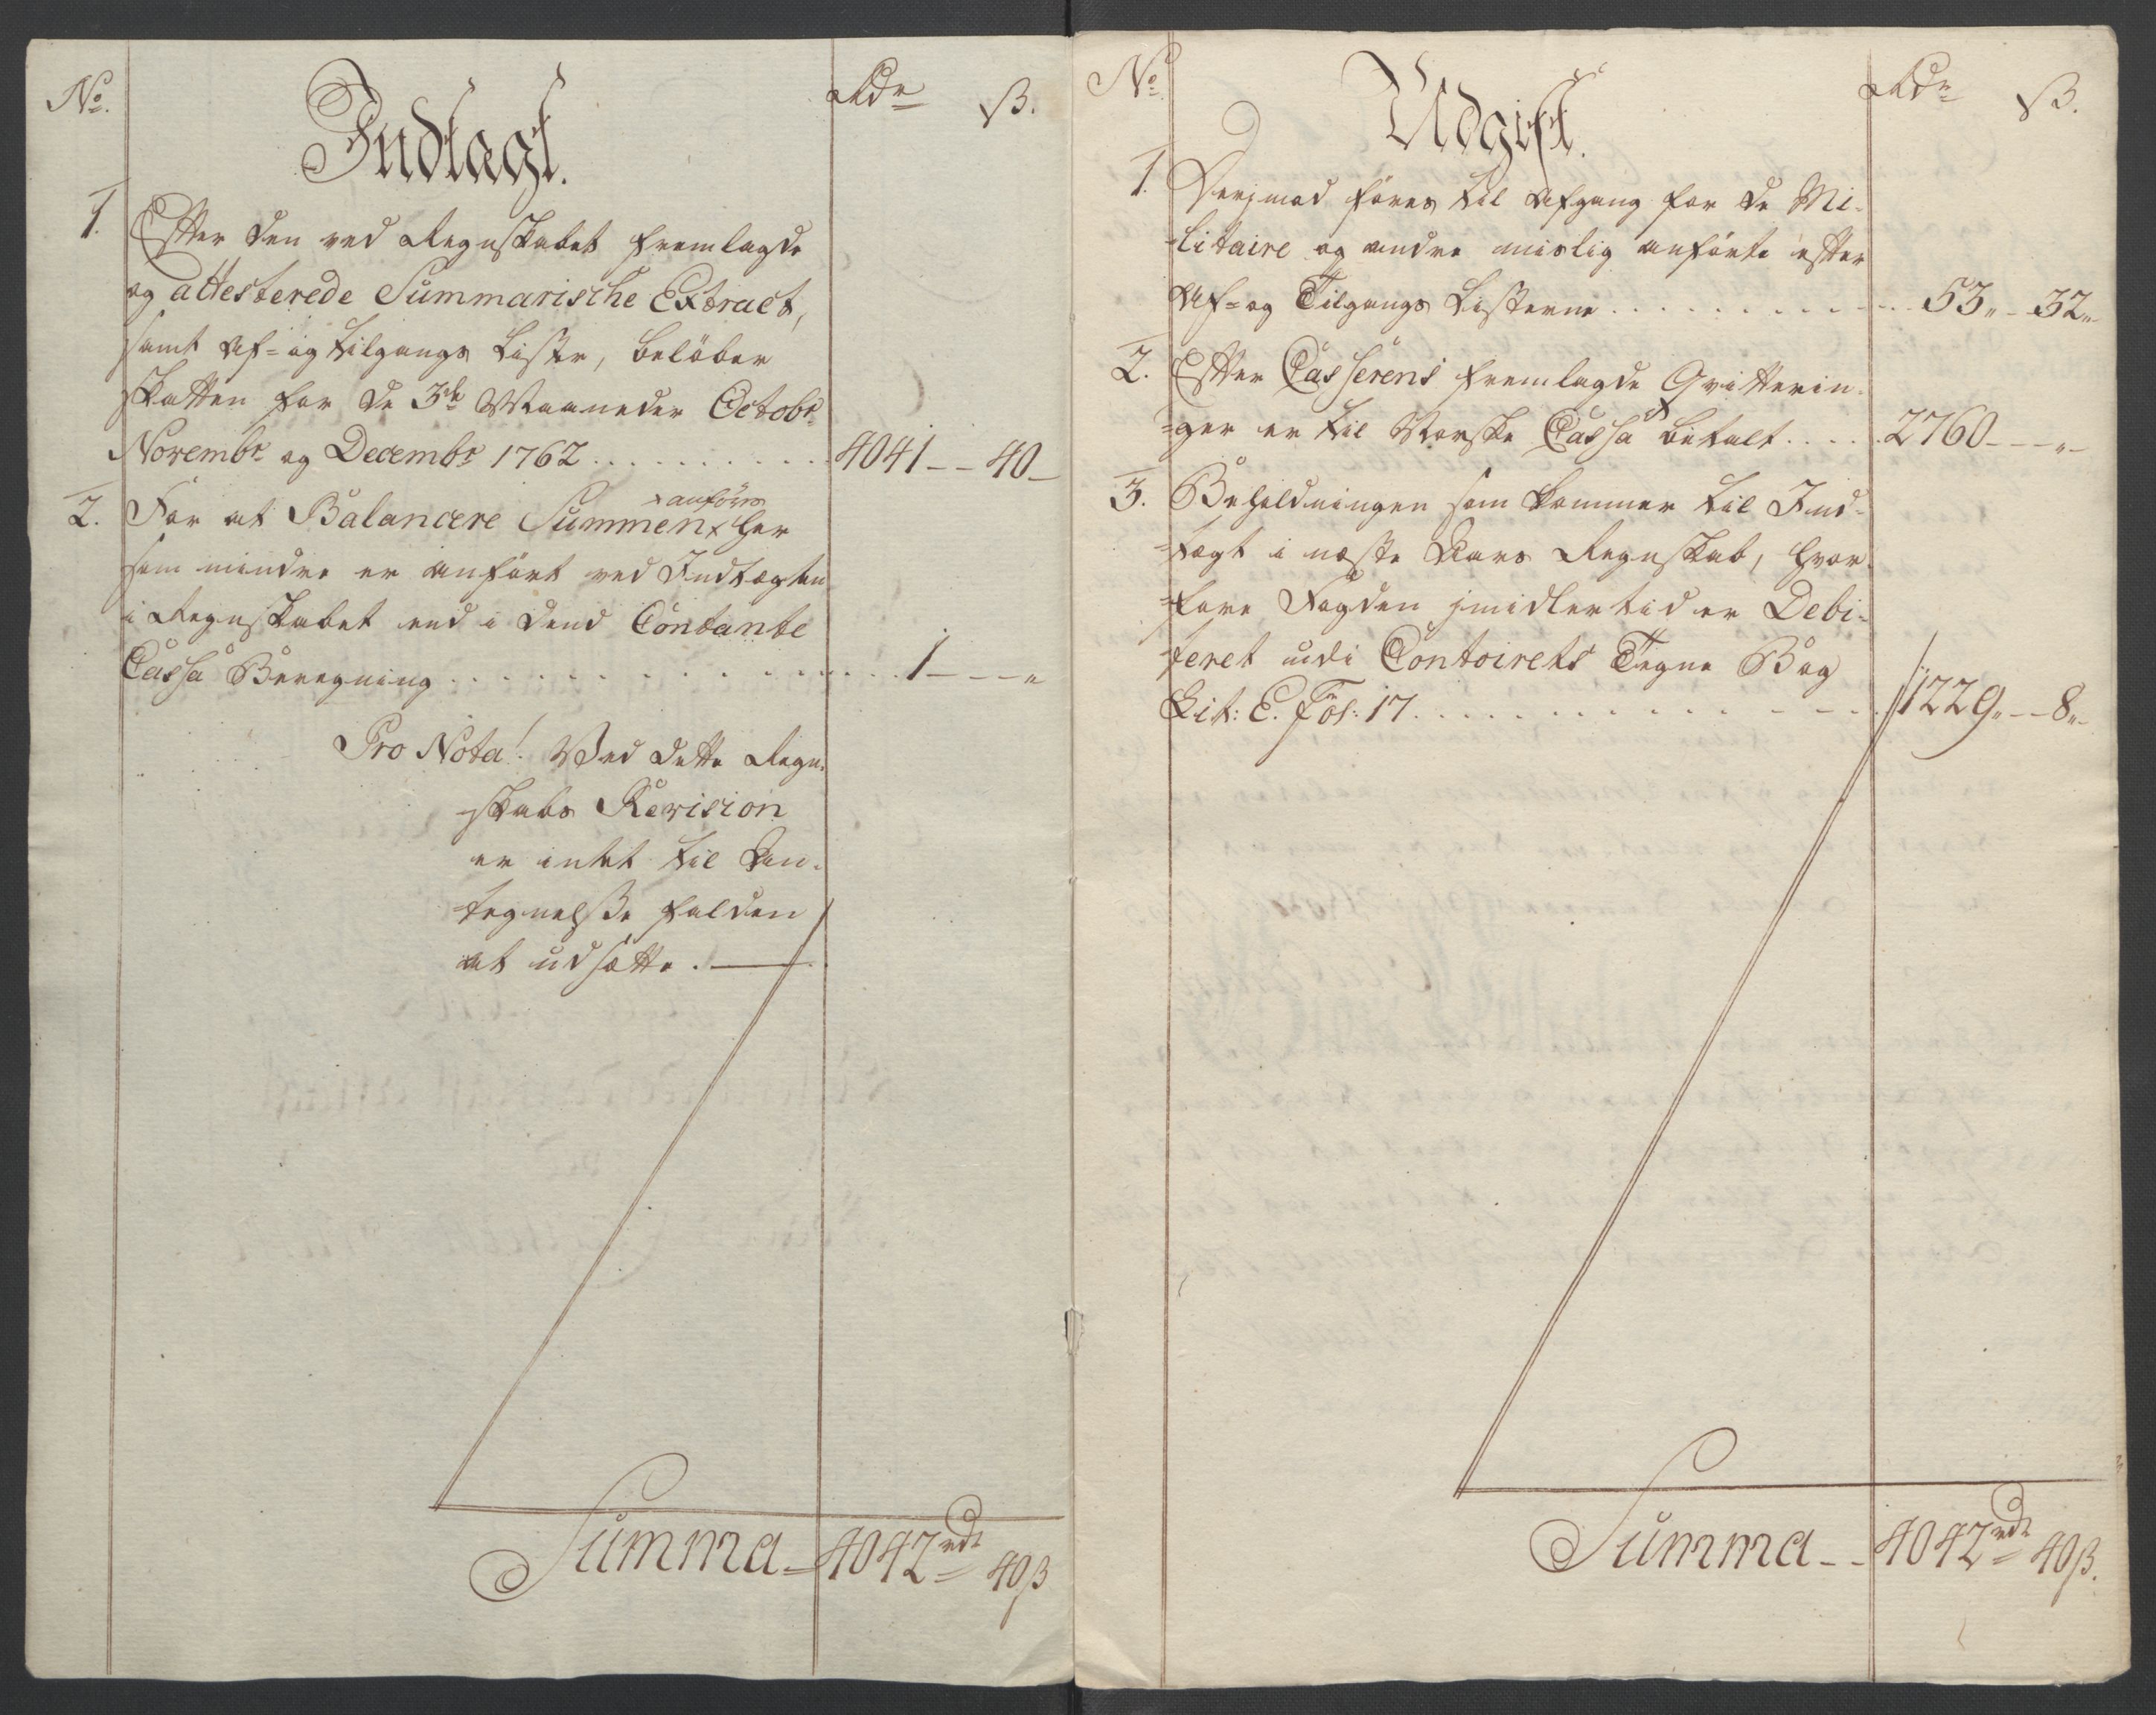 No.
Rdr
ß.
Indtægt.
1. Efter den ved Regnskabet fremlagde
og attesterede Summarische Extract,
samt Af- og tilgangs Liste, beløber
Skatten for de 3de Maaneder Octobr
Novembr og Decembr 1762 . . . . . . . . . . 4041 — 40 —
2. For at Balancere Summen × her
× anføres
som mindre er anført ved Indtægten
i Regnskabet end i dend Contante
Cassa Beregning . . . . . . . . . . . . . . 1 — — „
Pro Nota! Ved dette Regn-
-skabs Revision
er intet til An-
tegnelße falden
at udsætte. —
Summa — 4042 rdr 40 ß
No
Rdr
ß.
Udgift.
1. Derimod føres til Afgang for de Mi-
-litaire og andre mislig anførte efter
Af- og Tilgangs Listerne . . . . . . . . . . 53 „ — 32 „
2. Efter Casserens fremlagde Qvitterin-
-ger er til Norske Cassa betalt . . . . . 2760 — — „ —
3. Beholdningen som kommer til Ind-
-tægt i næste Aars Regnskab, hvor-
-fore Fogden jmidlertid er Debi-
-teret udi Contoirets Tegne Bog
Lit: E. Fol: 17 . . . . . . . . . . . . . . 1229 „ — 8 „
Summa — 4042 rdr 40 ß.